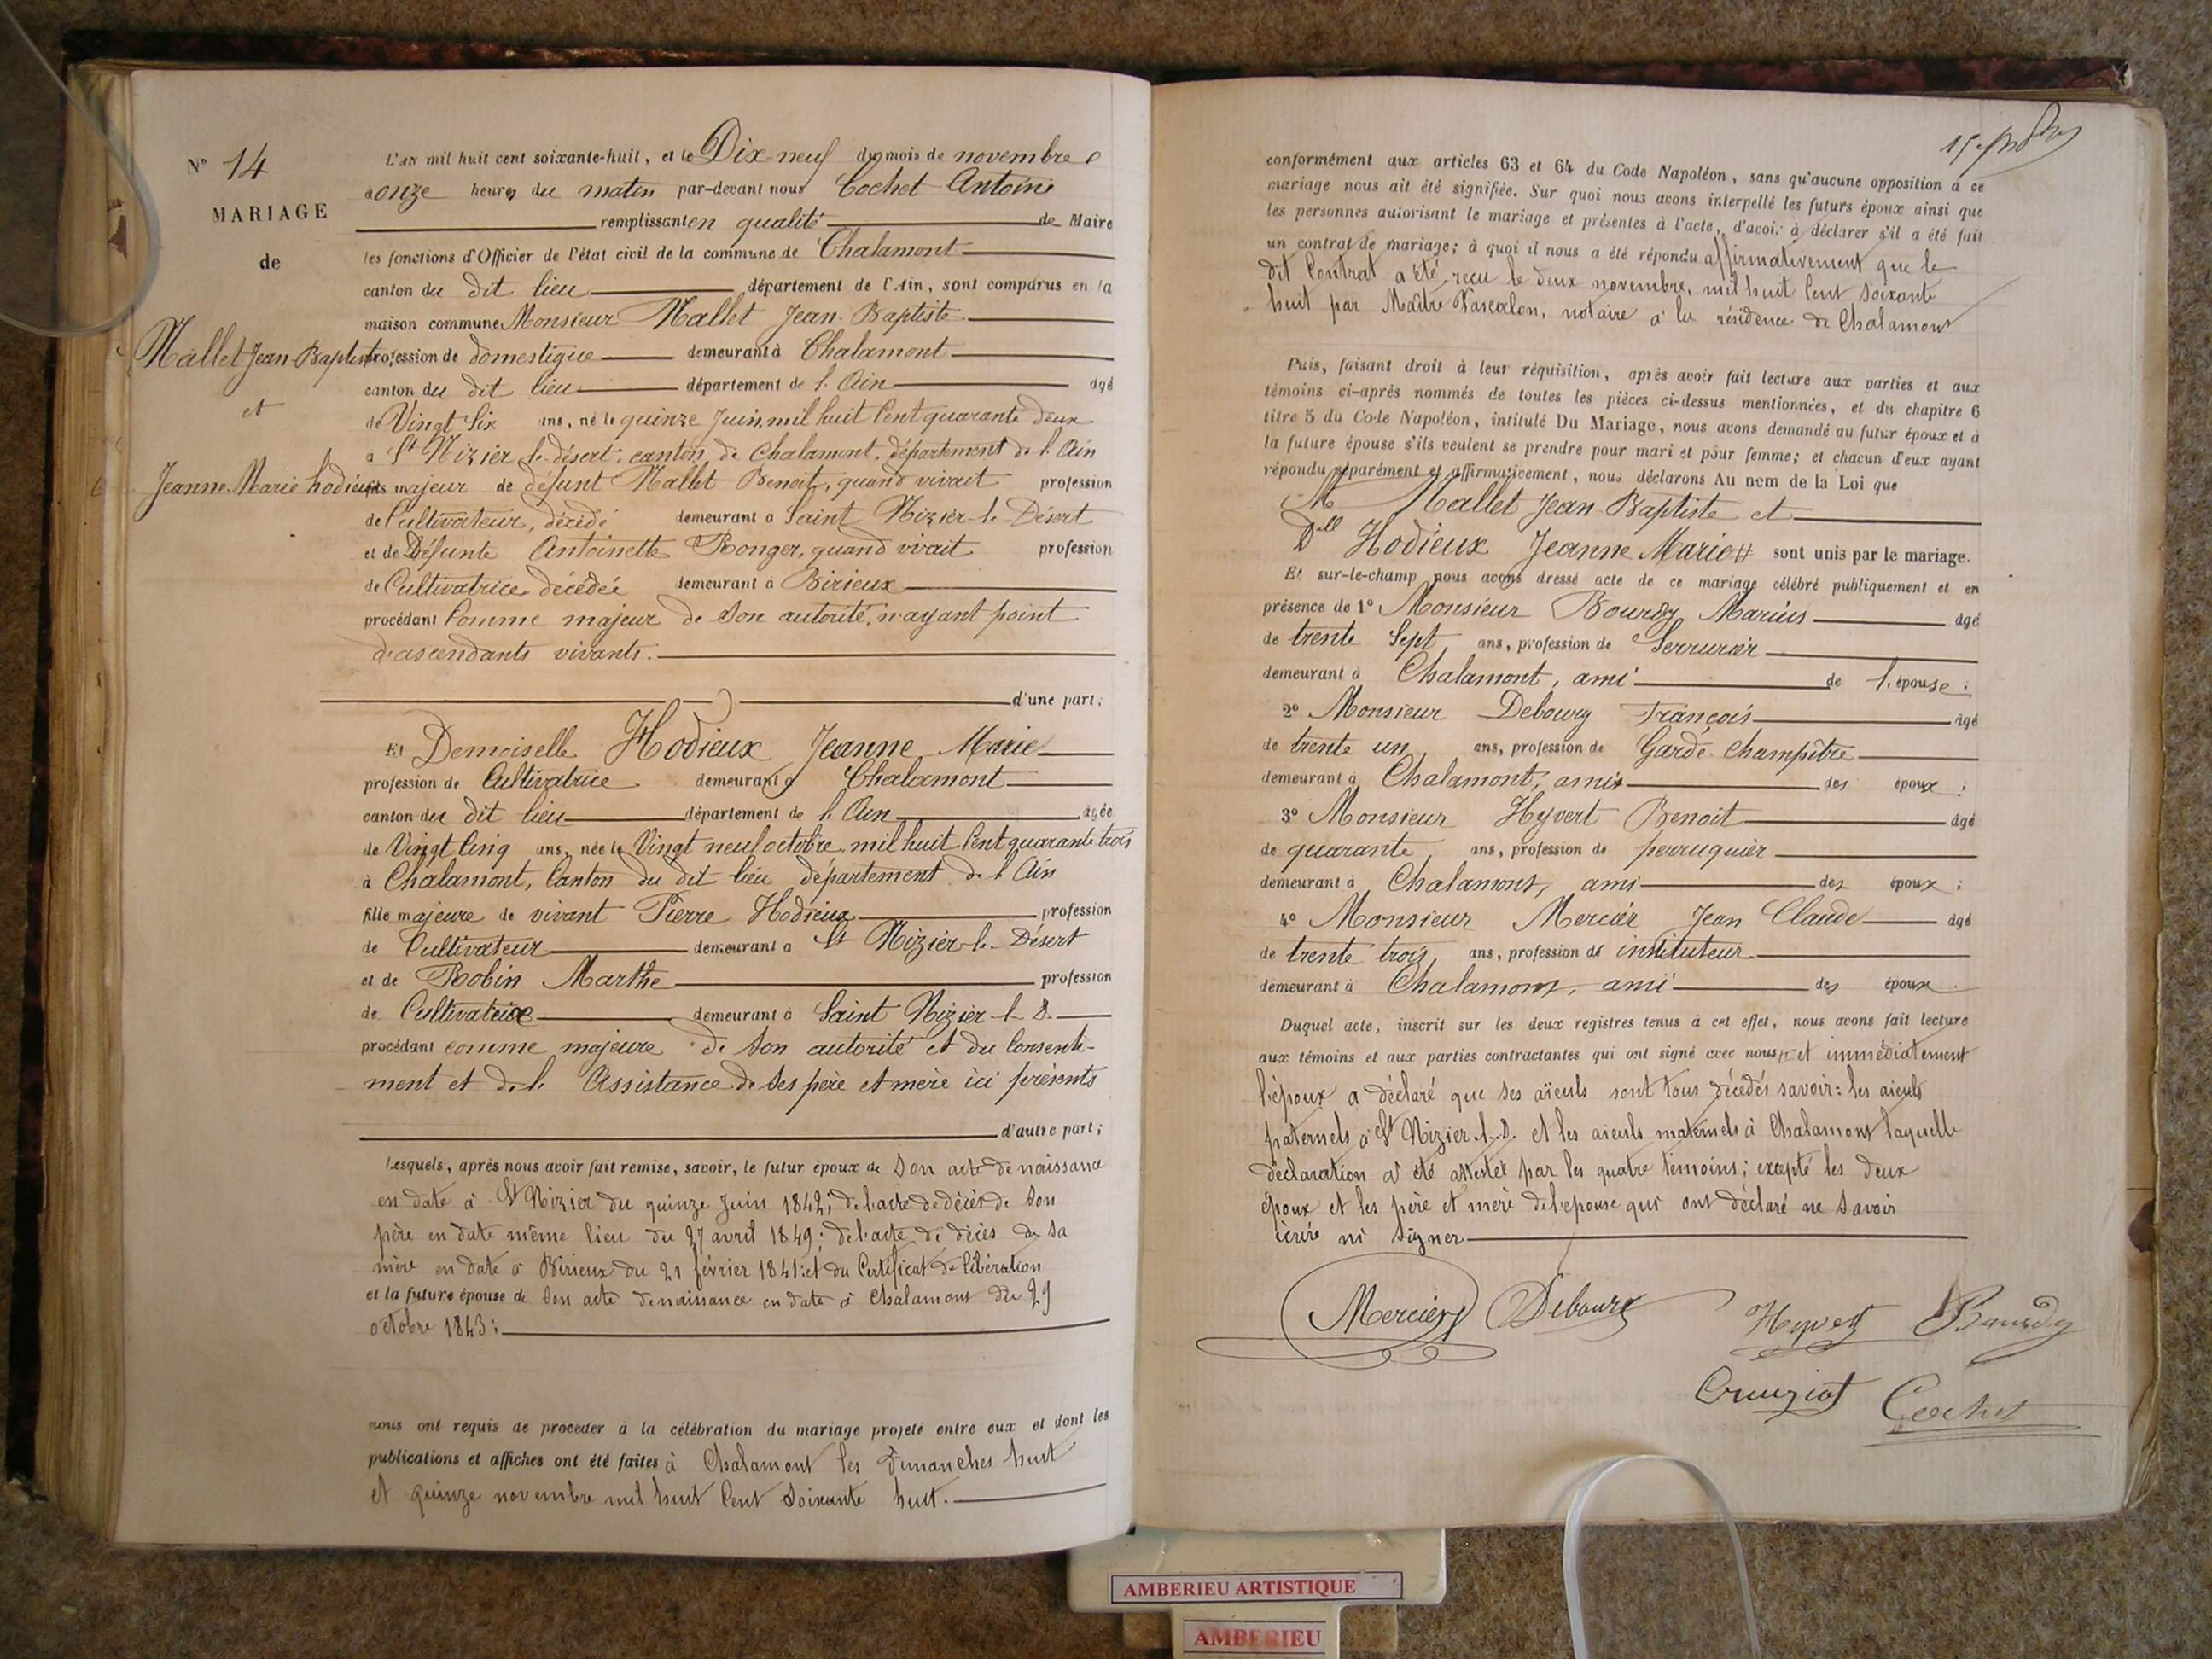 N° 14
MARIAGE
de
Mallet Jean-Baptiste
et
Jeanne-Marie hodieux
L'an mil huit cent soixante-huit, et le Dix-neuf du mois de novembre
à onze heures du matin par-devant nous Cochet Antoine
remplissant en qualité de Maire
les fonctions d'Officier de l'état civil de la commune de Chalamont
canton du dit lieu département de l'Ain, sont comparus en la
maison commune Monsieur Mallet Jean-Baptiste
profession de domestique demeurant à Chalamont
canton du dit lieu département de l'Ain âgé
de Vingt Six ans, né le quinze Juin, mil huit Cent quarante deux
à St Nizier le-désert, canton, de Chalamont, département de l'Ain
fils majeur de défunt Mallet Benoit, quand vivait profession
de Cultivateur, décédé demeurant à Saint Nizier-le-Désert
et de Défunte Antoinette Ronger, quand vivait profession
de Cultivatrice décédée demeurant à Birieux
procédant Comme majeur de Son autorité, n'ayant point
d'ascendants vivants.
d'une part;
Et Demoiselle Hodieux Jeanne Marie
profession de Cultivatrice demeurant à Chalamont
canton du dit lieu département de l'Ain âgée
de Vingt Cinq ans, née le Vingt neuf octobre, mil huit Cent quarante trois
à Chalamont, Canton du dit lieu département de l'Ain
fille majeure de vivant Pierre Hodieux profession
de Cultivateur demeurant à St Nizier-le-Désert
et de Robin Marthe profession
de Cultivatrice demeurant à Saint Nizier-l-D.
procédant comme majeure de Son autorité et du Consente-
ment et de l' Assistance de Ses père et mère ici présents
d'autre part;
Lesquels, après nous avoir fait remise, savoir, le futur époux de Son acte de naissance
en date à St Nizier du quinze Juin 1842; de l'acte de décès de Son
père en date même lieu du 27 avril 1849; de l'acte de décès de Sa
mère en date à Birieux du 21 février 1841: et du Certificat de libération
et la future épouse de Son acte de naissance en date à Chalamont du 29
octobre 1843:
nous ont requis de procéder à la célébration du mariage projeté entre eux et dont les
publications et affiches ont été faites à Chalamont les Dimanches huit
et quinze novembre mil huit Cent Soixante huit.
conformément aux articles 63 et 64 du Code Napoléon, sans qu'aucune opposition à ce
mariage nous ait été signifiée. Sur quoi nous avons interpellé les futurs époux ainsi que
les personnes autorisant le mariage et présentes à l'acte, d'avoir à déclarer s'il a été fait
un contrat de mariage; à quoi il nous a été répondu affirmativement que le
dit Contrat a été reçu le deux novembre, mil huit Cent Soixante
huit par Maître Pascalon, notaire à la résidence de Chalamont
Puis, faisant droit à leur réquisition, après avoir fait lecture aux parties et aux
témoins ci-après nommés de toutes les pièces ci-dessus mentionnées, et du chapitre 6
titre 5 du Code Napoléon, intitulé Du Mariage, nous avons demandé au futur époux et à
la future épouse s'ils veulent se prendre pour mari et pour femme; et chacun d'eux ayant
répondu séparément et affirmativement, nous déclarons Au nom de la Loi que
M Mallet Jean-Baptiste et
Dell Hodieux Jeanne Marie sont unis par le mariage.
Et sur-le-champ nous avons dressé acte de ce mariage célébré publiquement et en
présence de 1° Monsieur Bourdy Marius âgé
de trente Sept ans, profession de Serrurier
demeurant à Chalamont, ami de l'épouse;
2° Monsieur Deboury François âgé
de trente un ans, profession de Garde-Champêtre
demeurant à Chalamont, ami des époux;
3° Monsieur Hyvert Benoit âgé
de quarante ans, profession de perruquier
demeurant à Chalamont, ami des époux;
4° Monsieur Mercier Jean Claude âgé
de trente trois ans, profession de instituteur
demeurant à Chalamont, ami des époux.
Duquel acte, inscrit sur les deux registres tenus à cet effet, nous avons fait lecture
aux témoins et aux parties contractantes qui ont signé avec nous, et immédiatement
l'époux a déclaré que ses aïeuls sont tous décédés savoir: les aïeuls
paternels à St Nizier-l-D. et les aïeuls maternels à Chalamont laquelle
déclaration a été attestée par les quatre témoins; excepté les deux
époux et les père et mère de l'épouse qui ont déclaré ne Savoir
écrire ni Signer
Mercier Deboury Hyvert Bourdy
Cochet
AMBERIEU ARTISTIQUE
AMBERIEU